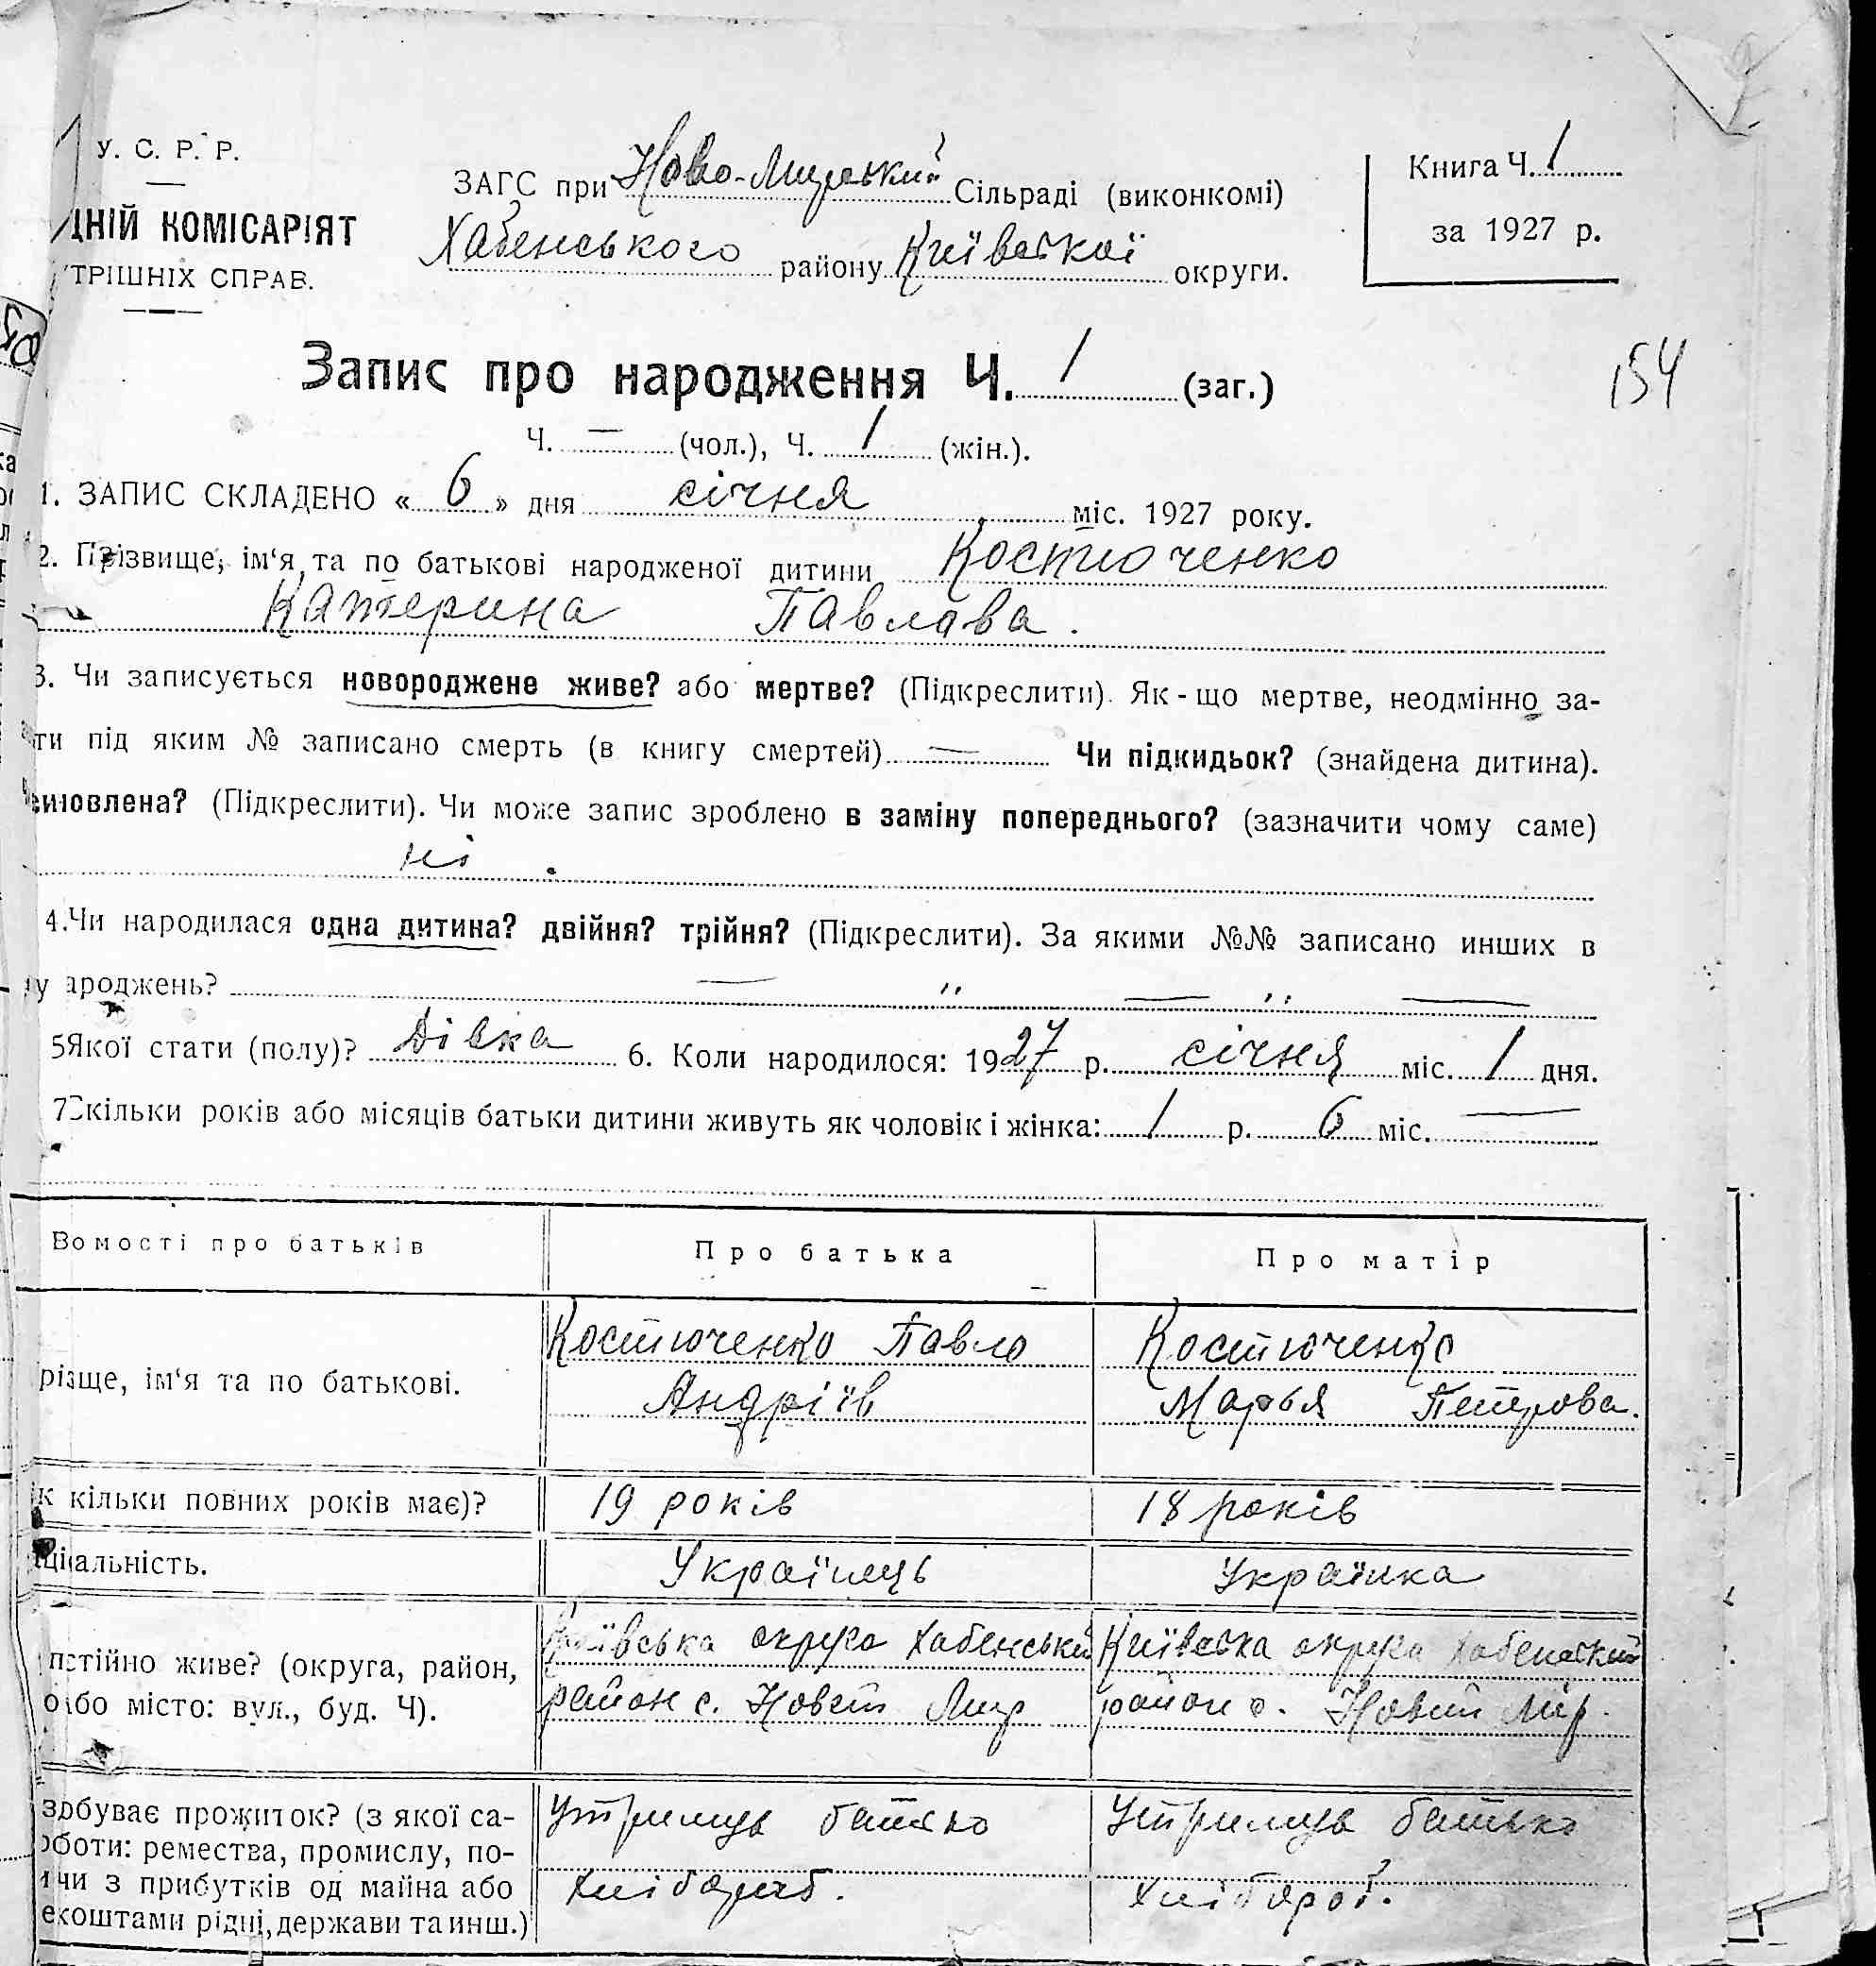 У. С. Р. Р.
ДНІЙ КОМІСАРІЯТ
ТРІШНІХ СПРАВ.
ЗАГС при Ново-Мирський Сільраді (виконкомі)
Хабенського району Київської округи.
Книга Ч. 1
за 1927 р.
154
Запис про народження Ч. 1 (заг.)
Ч. — (чол.), Ч. 1 (жін.).
1. ЗАПИС СКЛАДЕНО « 6 » дня січня міс. 1927 року.
2. Прізвище, ім‘я та по батькові народженої дитини Костюченко
Катерина Павлава.
3. Чи записується новороджене живе? або мертве? (Підкреслити). Як-що мертве, неодмінно за-
ти під яким № записано смерть (в книгу смертей) — Чи підкидьок? (знайдена дитина).
иновлена? (Підкреслити). Чи може запис зроблено в заміну попереднього? (зазначити чому саме)
ні.
4. Чи народилася одна дитина? двійня? трійня? (Підкреслити). За якими №№ записано инших в
у ароджень? — „ — „ —
5 Якої стати (полу)? Дівка 6. Коли народилося: 1927 р. січня міс. 1 дня.
7 кільки років або місяців батьки дитини живуть як чоловік і жінка: 1 р. 6 міс. —
Вомості про батьків Про батька Про матір
різще, ім‘я та по батькові.
Костюченко Павло
Андріїв
Костюченко
Марья Петрова.
к кільки повних років має)? 19 років 18 років
ціальність. Українець Українка
петійно живе? (округа, район,
або місто: вул., буд. Ч).
Київська округа Хабенський
район с. Новий Мир
Київська округа Хабенський
район с. Новий Мір.
здобуває прожиток? (з якої са-
оботи: ремества, промислу, по-
чи з прибутків од майна або
коштами рідні, держави та инш.)
Утримує батько
хлібороб.
Утримує батько
хлібороб.